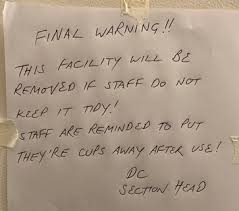 FINAL WARNING!!
THIS FACILITY WILL BE
REMOVED IF STAFF DO NOT
KEEP IT TIDY!
STAFF ARE REMINDED TO PUT
THEY'RE CUPS AWAY AFTER USE!
DC
SECTION HEAD